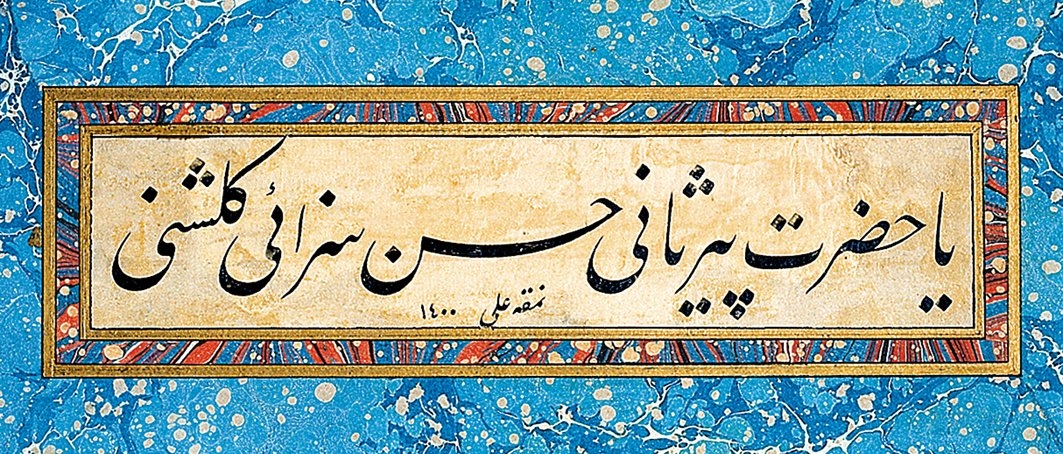 یا حضرت پیر ثانی حسن سزائی کلشنی
نمقه علی ١٤٠٠